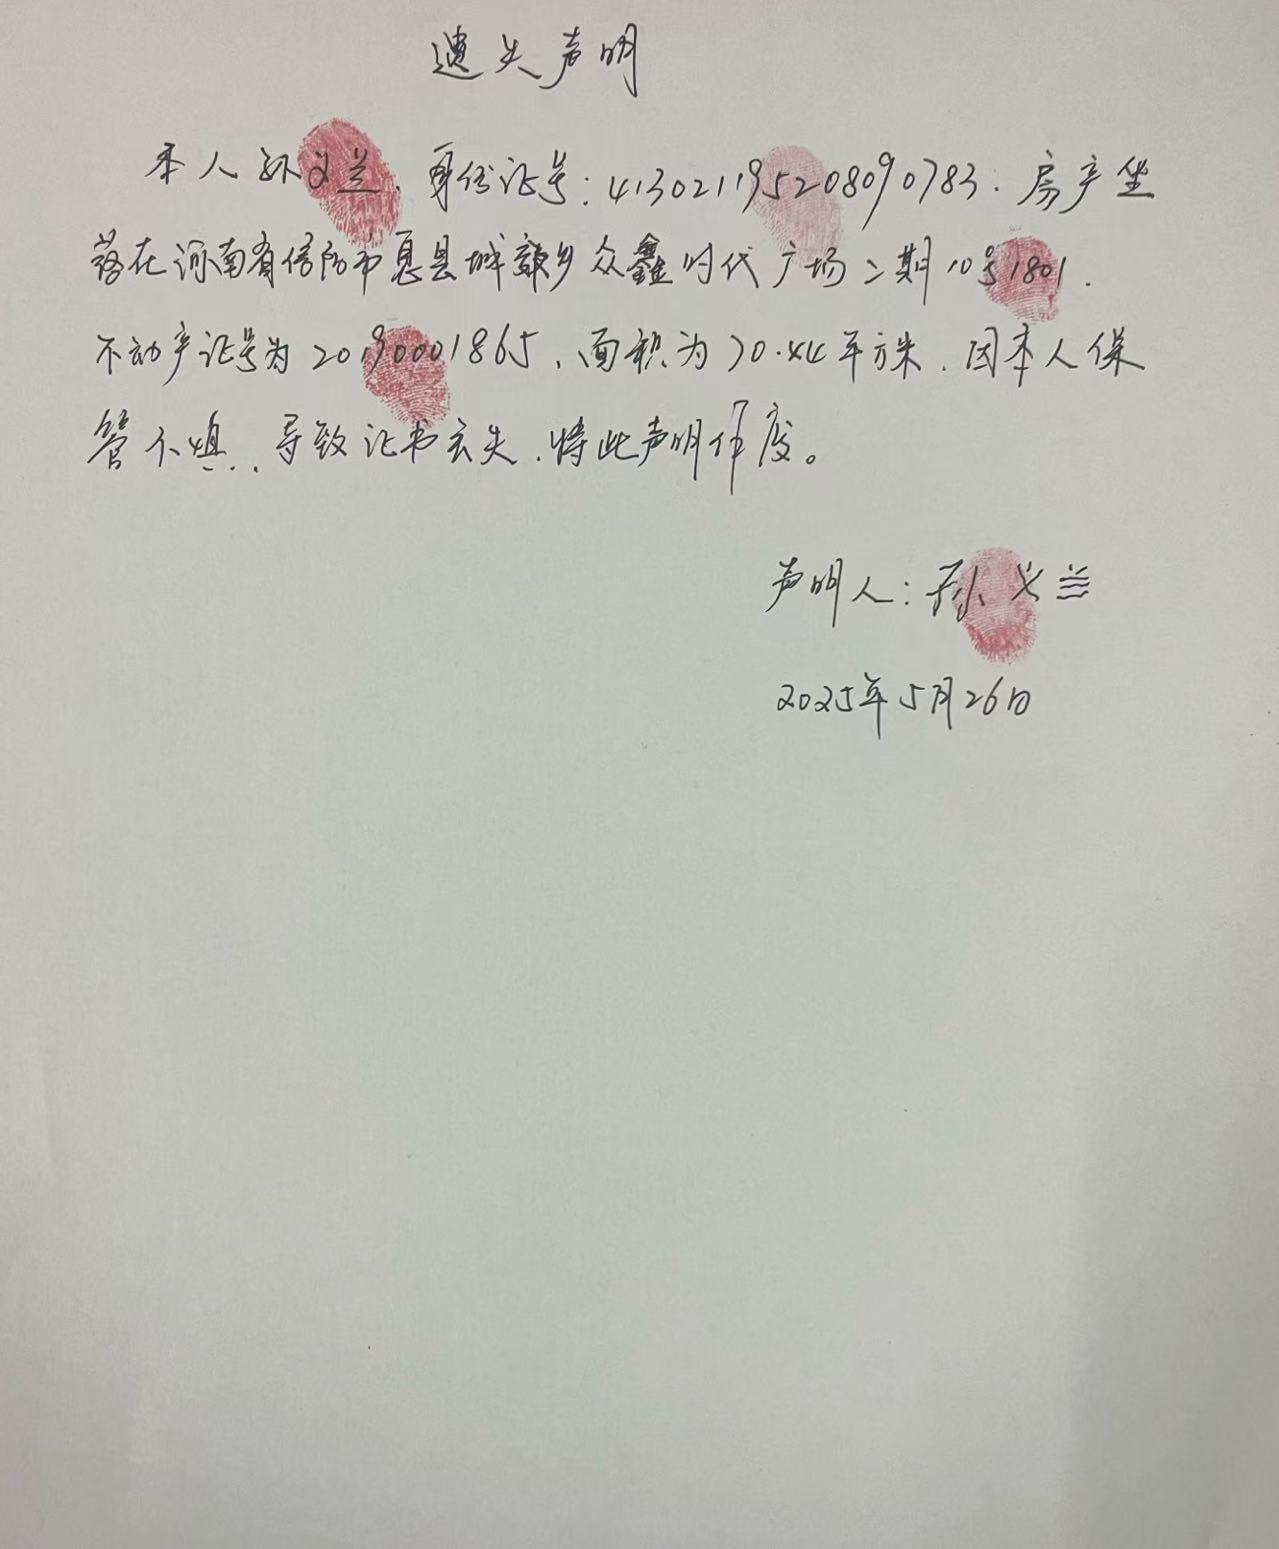 遗失声明
本人孙义兰，身份证号：413021195208090783．房产坐
落在河南省信阳市息县城郊乡众鑫时代广场二期10号1801．
不动产证号为20190001865，面积为70.44平方米．因本人保
管不慎，导致证书丢失，特此声明作废。
声明人：孙义兰
2025年5月26日